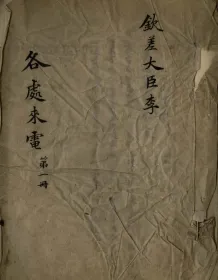 欽差大臣李
各處來電第一冊